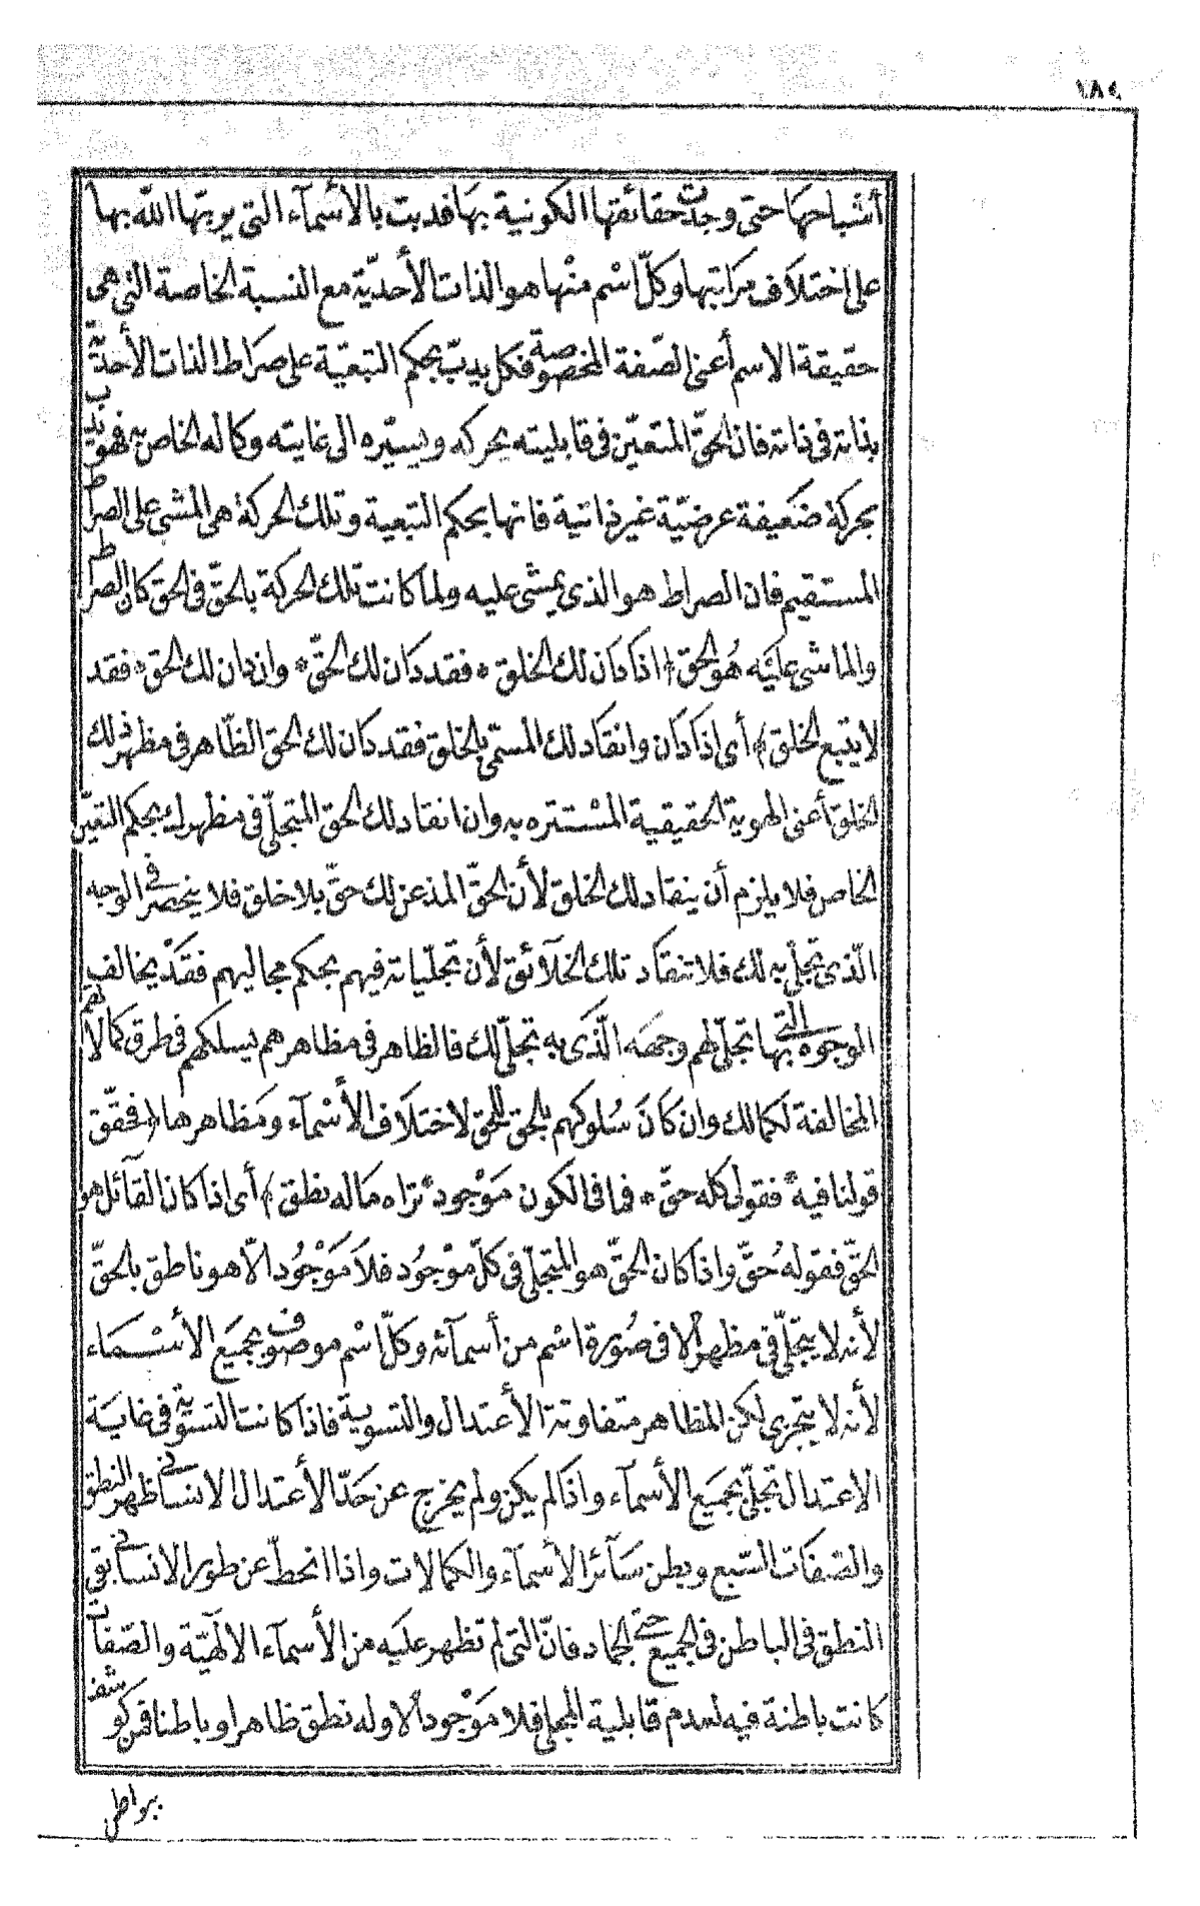 ١٨٤
أشباحها حتى وجدت حقائقها الكونية بها فدبت بالأسمآء التى يربّها الله بها
على اختلاف مراتبها وكلّ اسم منها هو الذات الأحديّة مع النسبة الخاصة التى هى
حقيقة الاسم أعنى الصّفة المخصوصة فكل يدبّ بحكم التبعيّة على صراط الذات الأحديّة
بذاته فى ذاته فان الحقّ المتعيّن فى قابليته يحركه ويسيّره الى غايته وكماله الخاص به فهو يدب
بحركة ضعيفة عرضيّة غير ذاتية فانها بحكم التبعية وتلك الحركة هى المشى على الصراط
المستقيم فان الصراط هو الذى يمشى عليه ولما كانت تلك الحركة بالحقّ فى الحق كان الصراط
والماشى عليه هُو الحق ﴿اذا دَان لك الخلق * فقد دَان لك الحقّ * وان دان لك الحق * فقد
لا يتبع الخلق﴾ أى اذا دَان وانقاد لك المسمّى بالخلق فقد دان لك الحق الظّاهر فى مظهر ذلك
الخلق أعنى الهوية الحقيقية المسْتتره به وان انقاد لك الحق المتجلّى فى مظهر لك بحكم التعيّن
الخاص فلا يلزم أن ينقاد لك الخلق لأن الحقّ المذعن لك حقّ بلا خلق فلا ينحصر فى الوجه
الّذى تجلّى به لك فلا تنقاد تلك الخلآئق لأن تجلّياته فيهم بحكم مجاليهم فقَدْ يخالف
الوجوه التى بها تجلّى لهم وجهَه الّذى به تجلّى لك فالظاهر فى مظاهرهم يسلكهم فى طرق كمالاتهم
المخالفة لكمالك وان كانَ سُلوكهم بالحق للحق لاختلاف الأسْمآء ومَظاهرها ﴿فحقّق
قولنا فيه * فقولى كله حقّ * فما فى الكون مَوْجود * تراه ماله نطق﴾ أى اذا كان القآئل هو
الحقّ فقوله حُقّ واذا كان الحقّ هو المتجلّى فى كلّ موْجُود فلاَ مَوْجُود الّا هو ناطق بالحقّ
لأنه لا يتجلّى فى مظهر الا فى صُورة اسْم من أسمآئه وكلّ اسْم موصُوف بجميَع الأسْمَاء
لأنه لا يتجزى لكن المظاهر متفاوتة الأعتدال والتسوية فاذا كانت التسويّة فى غايَة
الاعتدال تجلّى بجميَع الأسمآء واذا لم يكن ولم يخرج عن حَدّ الأعتدال الانسانى ظهر النطق
والصّفات السّبع وبطن سَآئر الأسمآء والكمالات واذا انحطّ عن طور الانسانى بقى
النطق فى الباطن فى الجميع حتى الجماد فانّ التى لم تظهر عليَه من الأسمآء الالَهيّة والصّفات
كانت باطنة فيه لعدم قابلية المجلى فلا مَوْجود الا وله نطق ظاهرا وباطنا فمن كوشف
ببواطن